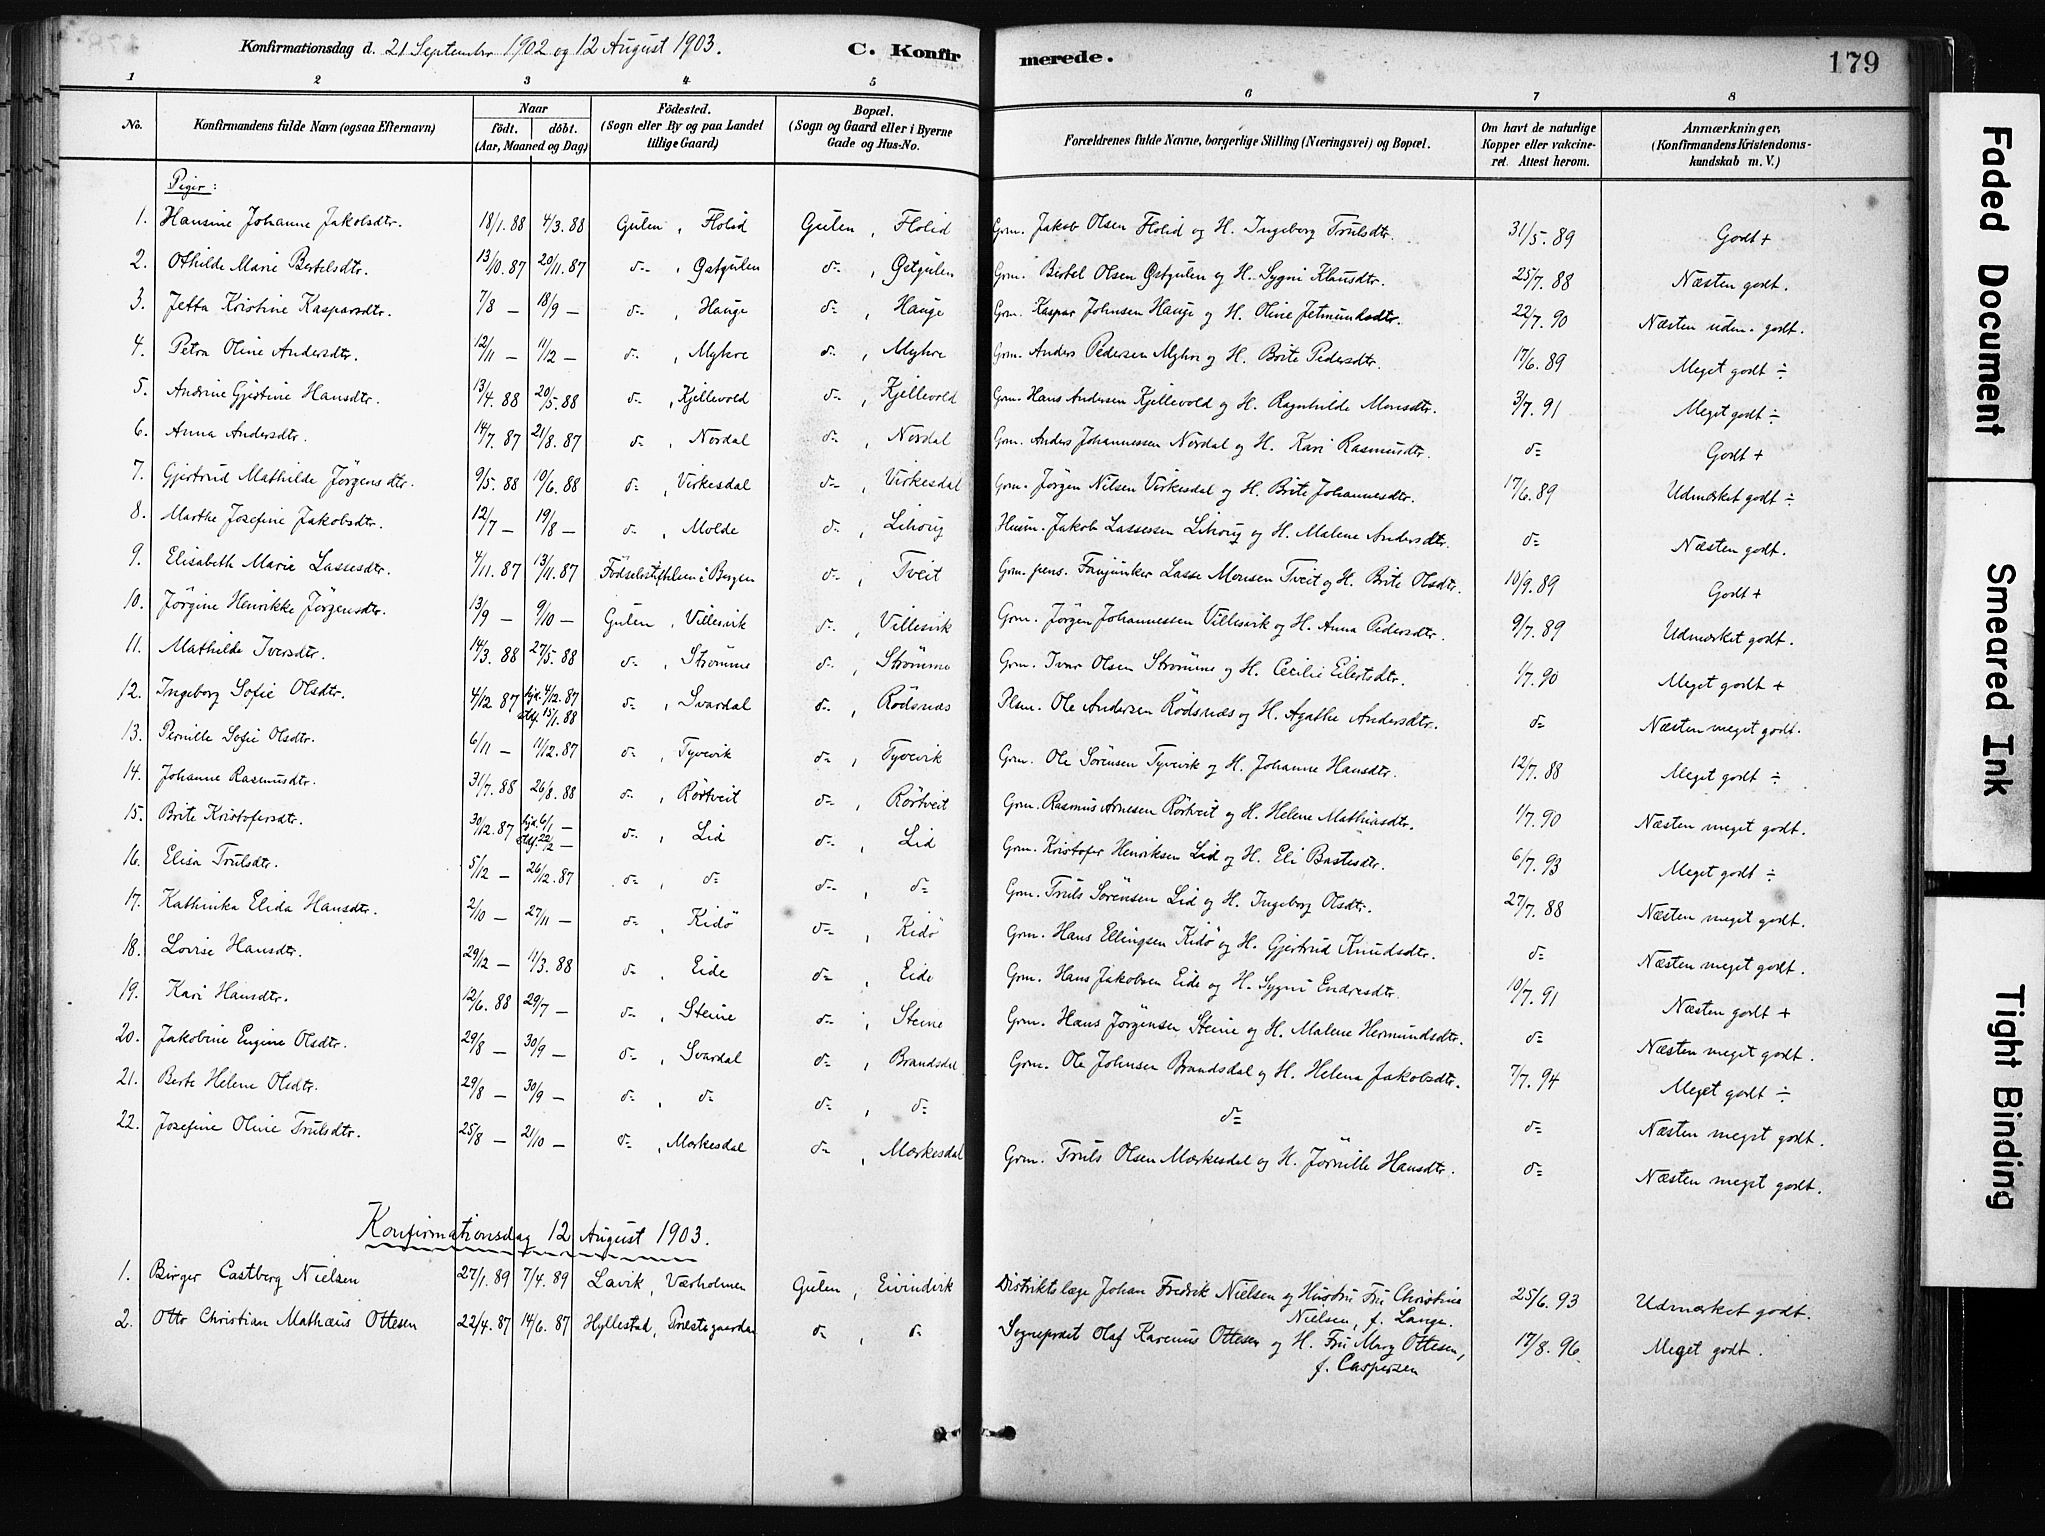 Konfirmationsdag d. 21 September 1902 og 12 August 1903. C. Konfirmerede. 179
1 2 3 4 5 6 7 8
No. Konfirmandens fulde Navn (ogsaa Efternavn) Naar födt. döbt. (Aar, Maaned og Dag) Födested. (Sogn eller By og paa Landet tillige Gaard) Bopæl. (Sogn og Gaard eller i Byerne Gade og Hus-No. Forældrenes fulde Navne, borgerlige Stilling (Næringsvei) og Bopæl. Om havt de naturlige Kopper eller vakcineret. Attest herom. Anmærkninger, (Konfirmandens Kristendomskundskab m. V.)
Piger:
1. Hansine Johanne Jakobsdtr. 18/1. 88 4/3. 88 Gulen, Flolid Gulen, Flolid Grm. Jakob Olsen Flolid og H. Ingeborg Trulsdtr. 31/5. 89 Godt +
2. Othilde Marie Bertelsdtr. 13/10. 87 20/11. 87 d=, Østgulen d=, Østgulen Grm. Bertel Olsen Østgulen og H. Sygni Klausdtr. 25/7. 88 Næsten godt.
3. Jetta Kristine Kaspardtr. 7/8 — 18/9 — d=, Hauge d=, Hauge Grm. Kaspar Johnsen Hauge og H. Oline Jetmundsdtr. 22/7. 90 Næsten udm. godt.
4. Petra Oline Andersdtr. 12/11 — 11/2 — d=, Myhre d=, Myhre Grm. Anders Pedersen Myhre og H. Brite Pedersdtr. 17/6. 89 Meget godt ÷
5. Andrine Gjertine Hansdtr. 13/4. 88 20/5. 88 d=, Kjellevold d=, Kjellevold Grm. Hans Andersen Kjellevold og H. Ragnhilde Monsdtr. 3/7. 91 Meget godt ÷
6. Anna Andersdtr. 14/7. 87 21/8. 87 d=, Nordal d=, Nordal Grm. Anders Johannessen Nordal og H. Kari Rasmusdtr. d= Godt +
7. Gjertrud Mathilde Jørgensdtr. 9/5. 88 10/6. 88 d=, Virkesdal d=, Virkesdal Grm. Jörgen Nilsen Virkesdal og H. Brite Johannesdtr. 17/6. 89 Udmærket godt ÷
8. Marthe Josefine Jakobsdtr. 12/7 — 19/8 — d=, Molde d=, Lihoug Husm. Jakob Lassesen Lihoug og H. Malene Andersdtr. d= Næsten godt.
9. Elisabeth Marie Lassesdtr. 4/11. 87 13/11. 87 Födselsstiftelsen i Bergen d=, Tveit Grm. pens. Fanejunker Lasse Monsen Tveit og H. Brite Olsdtr. 10/9. 89 Godt +
10. Jørgine Henrikke Jørgensdtr. 13/9 — 9/10 — Gulen, Villesvik d=, Villesvik Grm. Jörgen Johannessen Villesvik og H. Anna Pedersdtr. 9/7. 89 Udmærket godt.
11. Mathilde Iversdtr. 14/3. 88 27/5. 88 d=, Strømme d=, Strømme Grm. Ivar Olsen Strømme og H. Cecilie Eilertsdtr. 1/7. 90 Meget godt +
12. Ingeborg Sofie Olsdtr. 4/12 87 hjd. 4/12. 87 stdf. 15/1. 88 d=, Svardal d=, Rödsnæs Plsm. Ole Andersen Rödsnæs og H. Agathe Andersdtr. d= Næsten meget godt.
13. Pernille Sofie Olsdtr. 6/11 — 11/12. 87 d=, Tyvevik d=, Tyvevik Grm. Ole Sörensen Tyvevik og H. Johanne Hansdtr. 12/7. 88 Meget godt ÷
14. Johanne Rasmusdtr. 31/7. 88 26/8. 88 d=, Rörtveit d=, Rörtveit Grm. Rasmus Arnesen Rörtveit og H. Helene Mathiasdtr. 1/7. 90 Næsten meget godt.
15. Brite Kristofersdtr. 30/12. 87 hjd. 6/1 — stdf. 22/2 — d=, Lid d=, Lid Grm. Kristofer Henriksen Lid og H. Eli Bastesdtr. 6/7. 93 Meget godt ÷
16. Elisa Trulsdtr. 5/12 — 26/12. 87 d=, d= d=, d= Grm. Truls Sörensen Lid og H. Ingeborg Olsdtr. 27/7. 88 Næsten meget godt.
17. Kathinka Elida Hansdtr. 2/10 — 27/11 — d=, Kidö d=, Kidö Grm. Hans Ellingsen Kidö og H. Gjertrud Knudsdtr. d= Næsten meget godt.
18. Lovise Hansdtr. 29/12 — 11/3. 88 d=, Eide d=, Eide Grm. Hans Jakobsen Eide og H. Sygni Endresdtr. 10/7. 91 Næsten godt +
19. Kari Hansdtr. 12/6. 88 29/7 — d=, Steine d=, Steine Grm. Hans Jørgensen Steine og H. Malene Hermundsdtr. d= Næsten meget godt.
20. Jakobine Eugine Olsdtr. 29/8 — 30/9 — d=, Svardal d=, Brandsdal Grm. Ole Johnsen Brandsdal og H. Helena Jakobsdtr. 7/7. 94 Meget godt ÷
21. Berte Helene Olsdtr. 29/8 — 30/9 — d=, d= d=, d= d= d= Næsten meget godt.
22. Josefine Oline Trulsdtr. 25/8 — 21/10 — d=, Markesdal d=, Markesdal Grm. Truls Olsen Markesdal og H. Jørnille Hansdtr. d= Næsten meget godt.
Konfirmationsdag 12 August 1903.
1. Birger Castberg Nielsen 27/1. 89 7/4. 89 Lavik, Værholmen Gulen, Eivindvik Distriktslæge Johan Fredrik Nielsen og Hustru Fru Christine Nielsen, f. Lange. 25/6. 93 Udmærket godt.
2. Otto Christian Mathæus Ottesen 22/4. 87 14/6. 87 Hyllestad, Præstegaarden d=, d= Sognepræst Olaf Karenus Ottesen og H. Fru Mary Ottesen, f. Caspersen 17/8. 96. Meget godt.
Faded Document
Smeared Ink
Tight Binding